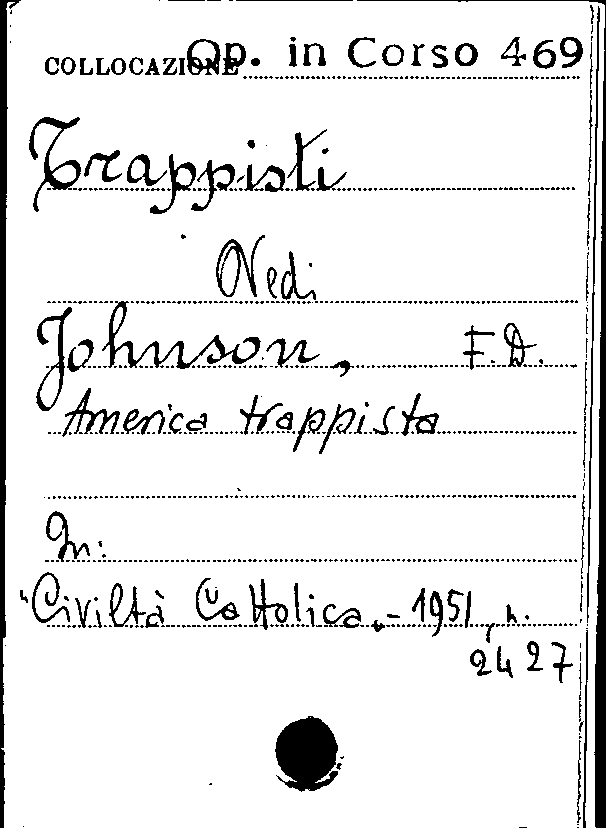 COLLOCAZIONE Op. in Corso 469
Trappisti
Vedi
Johnson, F. D.
America trappista
In:
"Civiltà Cattolica„ - 1951, n.
2427